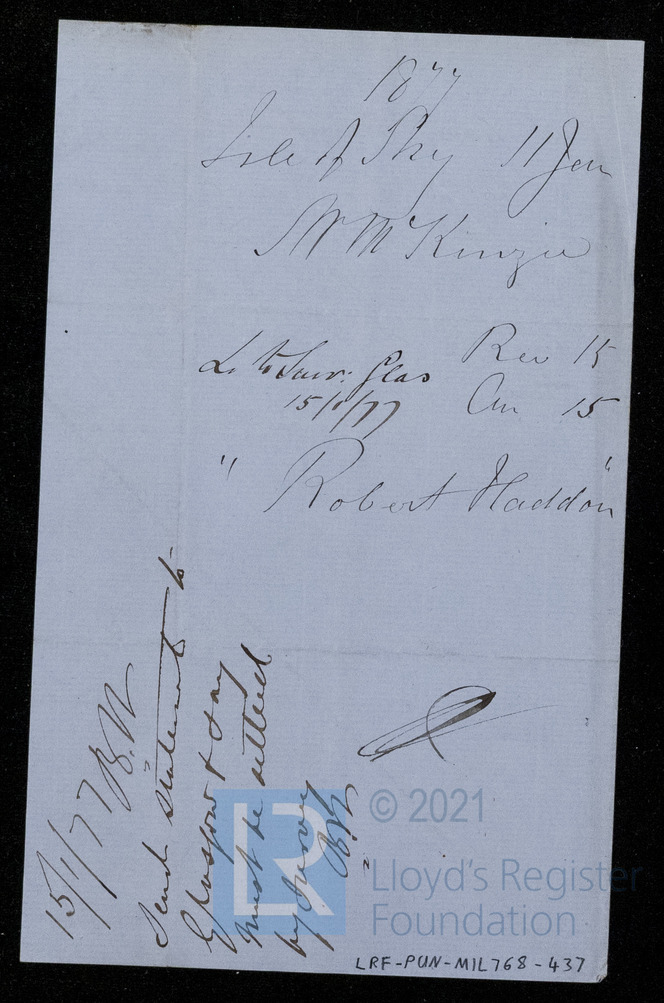 1877
Isle of Sky 11 Jan
W McKinzie
L. to Surr. Glas
15/1/77
Rec 15
An 15
" Robert Haddon "
15/1/77 B.W
Send statement to
Glasgow & say
must be settled
by survey
B.W
LR
© 2021
Lloyd's Register
Foundation
LRF-PUN-MIL768-437